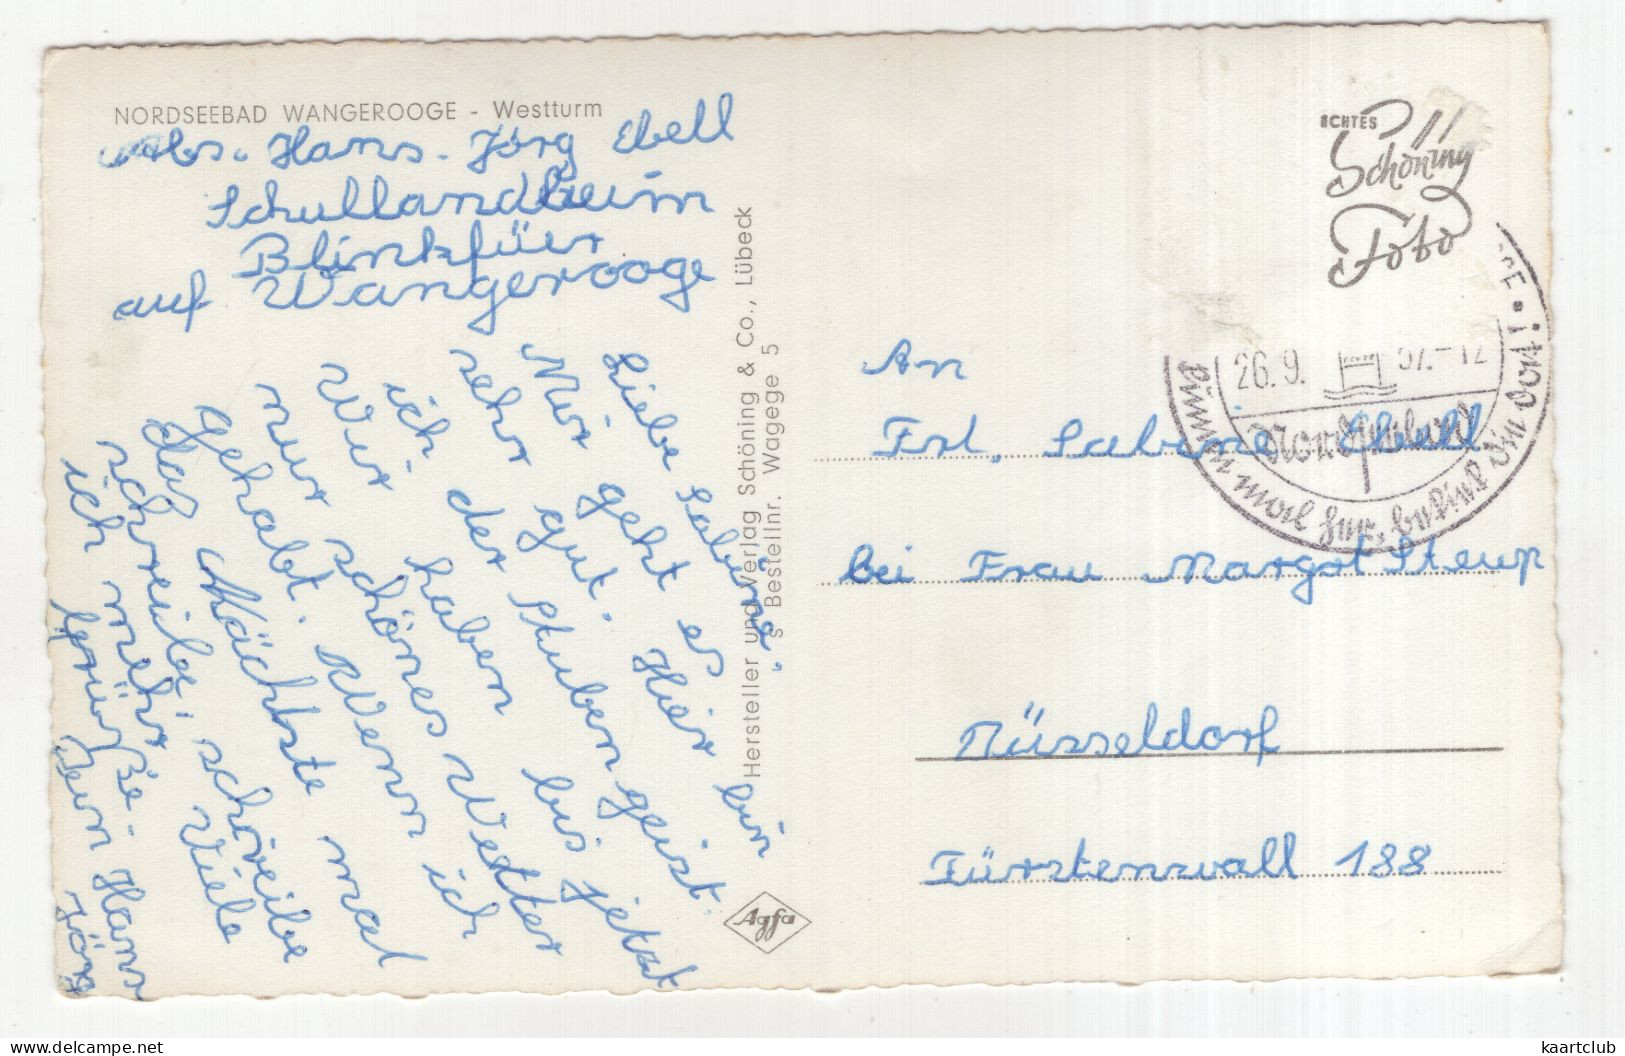 NORDSEEBAD WANGEROOGE - Westturm
Abs. Hans-Jörg Ebell
Schullandheim
Blinkfüer
auf Wangerooge
Liebe Sabine!
Mir geht es
sehr gut. Hier bin
ich der Stubengeist.
Wir haben bis jetzt
nur schönes Wetter
gehabt. Wenn ich
das Nächste mal
schreibe, schreibe
ich mehr. Viele
Grüße.
Dein Hans
Jörg
Hersteller und Verlag Schöning & Co., Lübeck
Bestellnr. Wagege 5
Agfa
ECHTES
Schöning
Foto
26.9. 57.-12
Nordseebad
An
Frl. Sabine Ebell
bei Frau Margot Steup
Düsseldorf
Fürstenwall 188
kaartclub